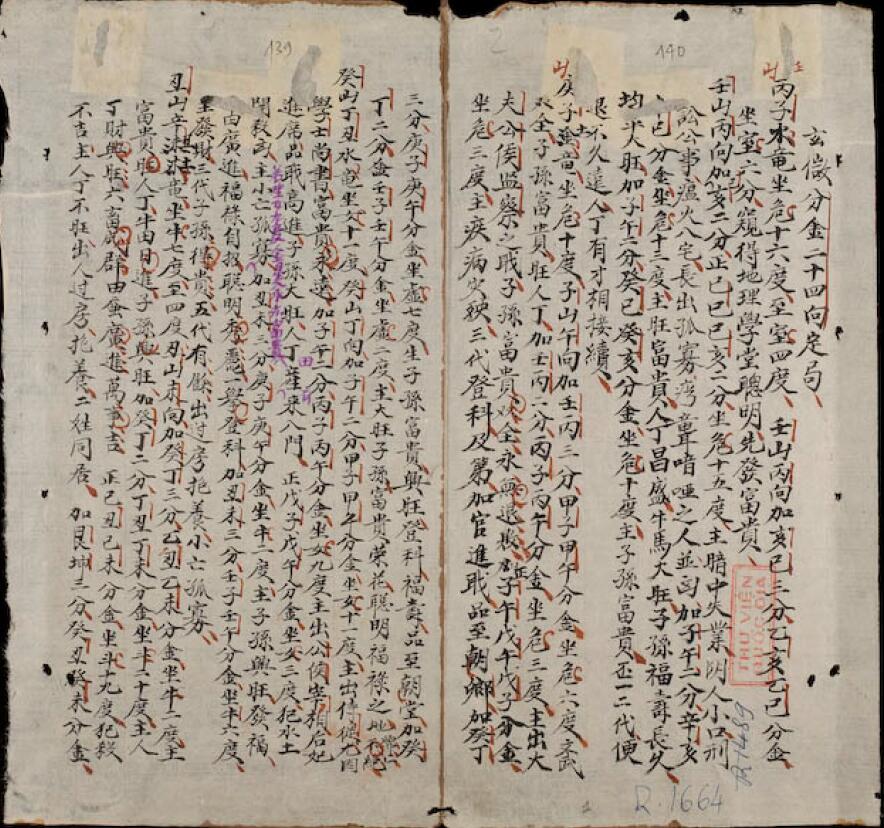 140
玄微分金二十四向定局
丙子水竜坐危十六度至室四度 壬山丙向加亥巳三分乙亥乙巳分金
坐室六分窺得地理學堂聰明先發富貴
壬山丙向加亥二分正巳巳巳亥二分坐危十五度主暗中失業陰人小口刑
訟公事瘟火八宅長出孤寡 聾喑啞之人並凶加子午二分辛亥
辛巳分金坐危十三度主旺富貴人丁昌盛牛馬大旺子孫福壽長久
均平大旺加子午二分癸巳癸亥分金坐危十度主子孫富貴 一二代便
退不久遠人丁有才相接續
庚子 竜坐危十度子山午向加壬丙三分甲子甲午分金坐危六度文武
双全子孫富貴旺人丁加壬丙二分丙子丙午分金坐危三度主出大
夫公侯監察之职子孫富貴双全永無退敗加子午戊午戊子分金
坐危三度主疾病灾殃三代登科及第加官進职品至朝鄉加癸丁
139
三分庚子庚午分金坐虚七度生子孫富貴興旺登科福壽品至朝堂加癸
丁二分金壬子壬午分金坐虚二度主大旺子孫富貴榮花聰明福祿之地
癸山丁丑水竜坐女十一度癸山丁向加子午二分甲子甲午分金坐女十一度主出
學士尚書富貴永遠加子午二分丙子丙午分金坐女九度主出公侯宰 后妃
進席品职高進子孫大旺人丁產來八門 正戊子戊午分金坐女三度犯水土
主小亡孤寡 加丑未三分庚子庚午分金坐牛二度主子孫興旺發福
田廣進福祿自招聰明秀麗一舉登科加丑未三分壬子壬午分金坐牛六度
主發財三代子孫得貴五代有 出过房抱養小亡孤寡
丑山辛 竜坐牛七度至四度丑山未向加癸丁三分乙丑乙未分金坐牛二度主
富貴旺人丁牛田日進子孫興旺加癸丁二分丁丑丁未分金坐斗二十度主人
丁財興旺六畜成群田蚕廣進萬事吉 正己丑己未分金坐斗十九度犯殺
不吉主人丁不旺出人过房抱養二姓同居 加艮坤三分癸丑癸未分金
THƯ VIỆN
QUỐC GIA
R.1489
R.1664